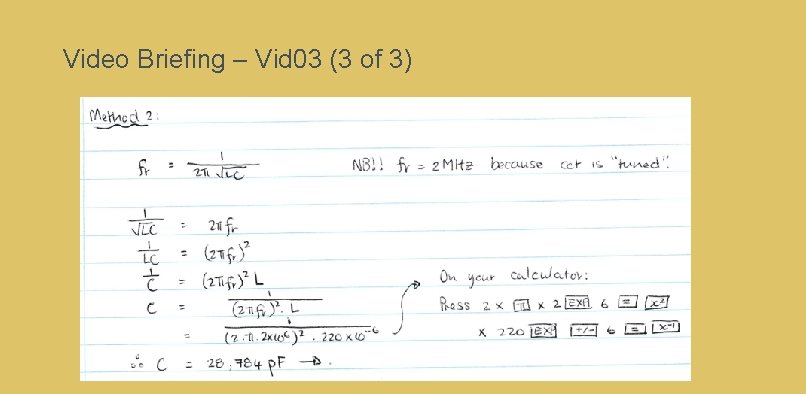 Video Briefing – Vid 03 (3 of 3)
Method 2:
fr = 1 / 2π √LC
NB!! fr = 2MHz because cct is "tuned".
1/√LC = 2πfr
1/LC = (2πfr)²
1/C = (2πfr)² L
C = 1 / (2πfr)². L
= 1 / (2.π.2x10⁶)² . 220 x 10⁻⁶
∴ C = 28,784 pF →.
On your calculator:
Press 2 x [π] x 2 [EXP] 6 [=] [x²]
x 220 [EXP] [+/-] 6 [=] [x⁻¹]